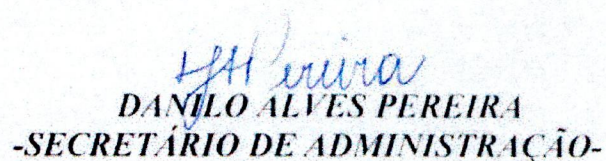 Pereira
DANILO ALVES PEREIRA
-SECRETÁRIO DE ADMINISTRAÇÃO-